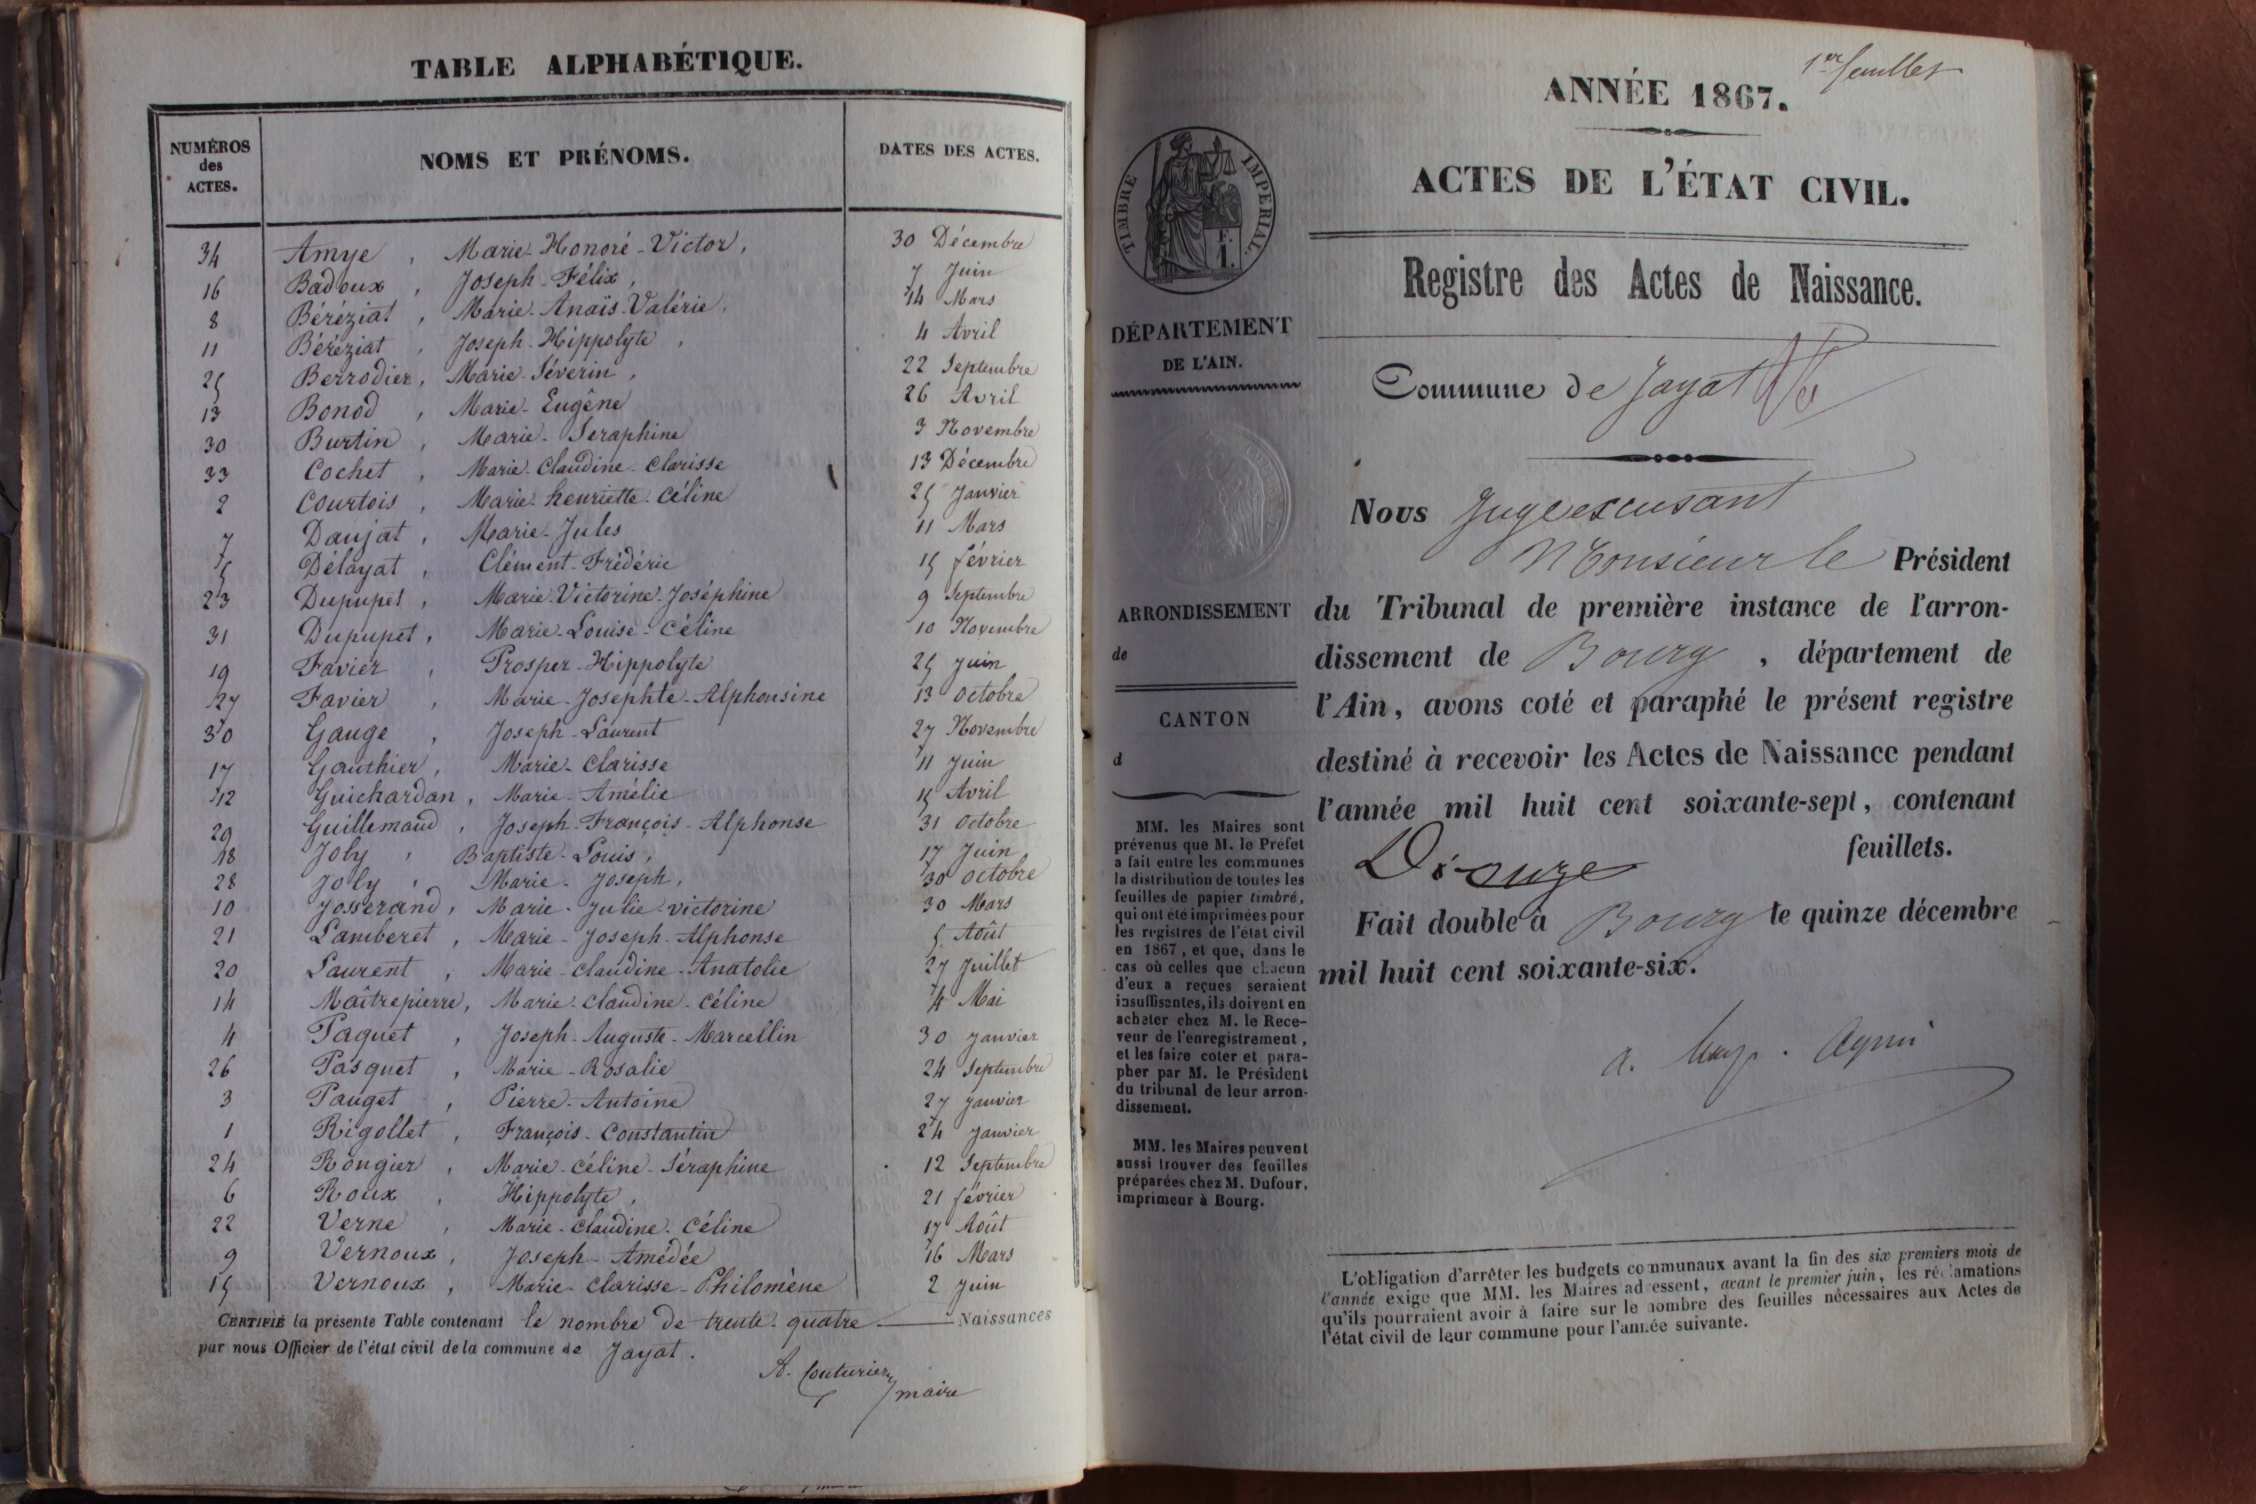 TABLE ALPHABÉTIQUE.
NUMÉROS des ACTES. NOMS ET PRÉNOMS. DATES DES ACTES.
34 Amye, Marie-Honoré-Victor, 30 Décembre
16 Badoux, Joseph-Félix, 7 Juin
8 Béréziat, Marie-Anaïs-Valérie, 14 Mars
11 Béréziat, Joseph-Hippolyte, 4 Avril
25 Berrodier, Marie-Séverin, 22 Septembre
13 Bonod, Marie-Eugène 26 Avril
30 Burtin, Marie-Seraphine 3 Novembre
33 Cochet, Marie-Claudine-Clarisse 13 Décembre
2 Courtois, Marie-henriette-Céline 25 Janvier
7 Daujat, Marie-Jules 11 Mars
5 Délayat, Clément-Frédéric 15 février
23 Dupupet, Marie-Victorine-Joséphine 9 Septembre
31 Dupupet, Marie-Louise-Céline 10 Novembre
19 Favier, Prosper-Hippolyte 25 Juin
27 Favier, Marie-Josephte-Alphonsine 13 Octobre
30 Gauge, Joseph-Laurent 27 Novembre
17 Gauthier, Marie-Clarisse 11 Juin
12 Guichardan, Marie-Amélie 15 Avril
29 Guillemaud, Joseph-François-Alphonse 31 Octobre
18 Joly, Baptiste-Louis, 17 Juin
28 Joly, Marie-Joseph, 30 Octobre
10 Josserand, Marie-Julie-victorine 30 Mars
21 Lamberet, Marie-Joseph-Alphonse 5 Août
20 Laurent, Marie-claudine-Anatolie 27 Juillet
14 Maîtrepierre, Marie-Claudine-Céline 4 Mai
4 Paquet, Joseph-Auguste-Marcellin 30 Janvier
26 Pasquet, Marie-Rosalie 24 Septembre
3 Pauget, Pierre-Antoine 27 Janvier
1 Rigollet, François-Constantin 24 Janvier
24 Rongier, Marie-Céline-Séraphine 12 Septembre
6 Roux, Hippolyte, 21 février
22 Verne, Marie-Claudine-Céline 17 Août
9 Vernoux, Joseph-Amédée 16 Mars
15 Vernoux, Marie-Clarisse-Philomène 2 Juin
CERTIFIÉ la présente Table contenant le nombre de trente-quatre Naissances
par nous Officier de l'état civil de la commune de Jayat.
A. Couturier
maire
1er feuillet
ANNÉE 1867.
ACTES DE L'ÉTAT CIVIL.
Registre des Actes de Naissance.
Commune de Jayat
Nous Juge excusant
Monsieur le Président
du Tribunal de première instance de l'arron-
dissement de Bourg, département de
l'Ain, avons coté et paraphé le présent registre
destiné à recevoir les Actes de Naissance pendant
l'année mil huit cent soixante-sept, contenant
feuillets.
Fait double à Bourg le quinze décembre
mil huit cent soixante-six.
TIMBRE IMPERIAL
F.
1.
DÉPARTEMENT
DE L'AIN.
ARRONDISSEMENT
de
CANTON
d
MM. les Maires sont
prévenus que M. le Préfet
a fait entre les communes
la distribution de toutes les
feuilles de papier timbré,
qui ont été imprimées pour
les registres de l'état civil
en 1867, et que, dans le
cas où celles que chacun
d'eux a reçues seraient
insuffisantes, ils doivent en
acheter chez M. le Rece-
veur de l'enregistrement,
et les faire coter et para-
pher par M. le Président
du tribunal de leur arron-
dissement.
MM. les Maires peuvent
aussi trouver des feuilles
préparées chez M. Dufour,
imprimeur à Bourg.
L'obligation d'arrêter les budgets communaux avant la fin des six premiers mois de
l'année exige que MM. les Maires adressent, avant le premier juin, les réclamations
qu'ils pourraient avoir à faire sur le nombre des feuilles nécessaires aux Actes de
l'état civil de leur commune pour l'année suivante.